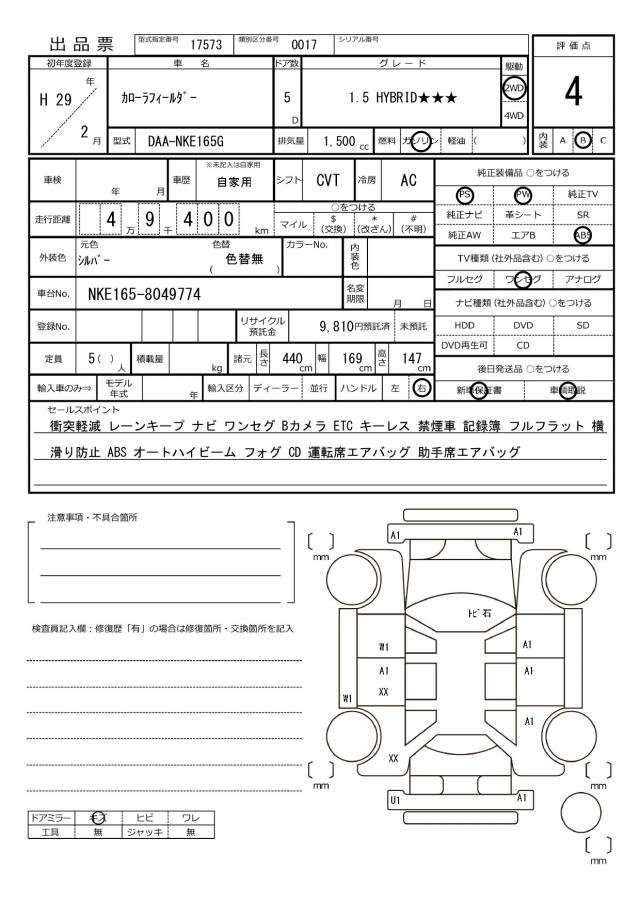 出品票 型式指定番号 17573 類別区分番号 0017 シリアル番号
評価点
4
内装 A B C
初年度登録 車名 ドア数 グレード 駆動
H 29 年 2 月 カローラフィールダー 5 D 1.5 HYBRID★★★ 2WD
4WD
型式 DAA-NKE165G 排気量 1,500 cc 燃料 ガソリン 軽油 ( )
車検 年 月 車歴 ※未記入は自家用 自家用 シフト CVT 冷房 AC
走行距離 4 万 9 千 4 0 0 km
○をつける
マイル $ (交換) * (改ざん) # (不明)
外装色 元色 シルバー 色替 ( 色替無 ) カラーNo. 内装色
車台No. NKE165-8049774 名変期限 月 日
登録No. リサイクル預託金 9,810円預託済 未預託
定員 5 ( ) 人 積載量 kg 諸元 長さ 440 cm 幅 169 cm 高さ 147 cm
輸入車のみ⇒ モデル年式 年 輸入区分 ディーラー 並行 ハンドル 左 右
純正装備品 ○をつける
PS PW 純正TV
純正ナビ 革シート SR
純正AW エアB ABS
TV種類 (社外品含む) ○をつける
フルセグ ワンセグ アナログ
ナビ種類 (社外品含む) ○をつける
HDD DVD SD
DVD再生可 CD
後日発送品 ○をつける
新車保証書 車輌取説
セールスポイント
衝突軽減 レーンキープ ナビ ワンセグ Bカメラ ETC キーレス 禁煙車 記録簿 フルフラット 横
滑り防止 ABS オートハイビーム フォグ CD 運転席エアバッグ 助手席エアバッグ
注意事項・不具合箇所
検査員記入欄：修復歴「有」の場合は修復箇所・交換箇所を記入
A1 A1
[ ] mm [ ] mm
トビ石
W1 A1
A1 A1
XX
W1
A1
XX
[ ] mm [ ] mm
U1 A1
[ ] mm
ドアミラー キズ ヒビ ワレ
工具 無 ジャッキ 無